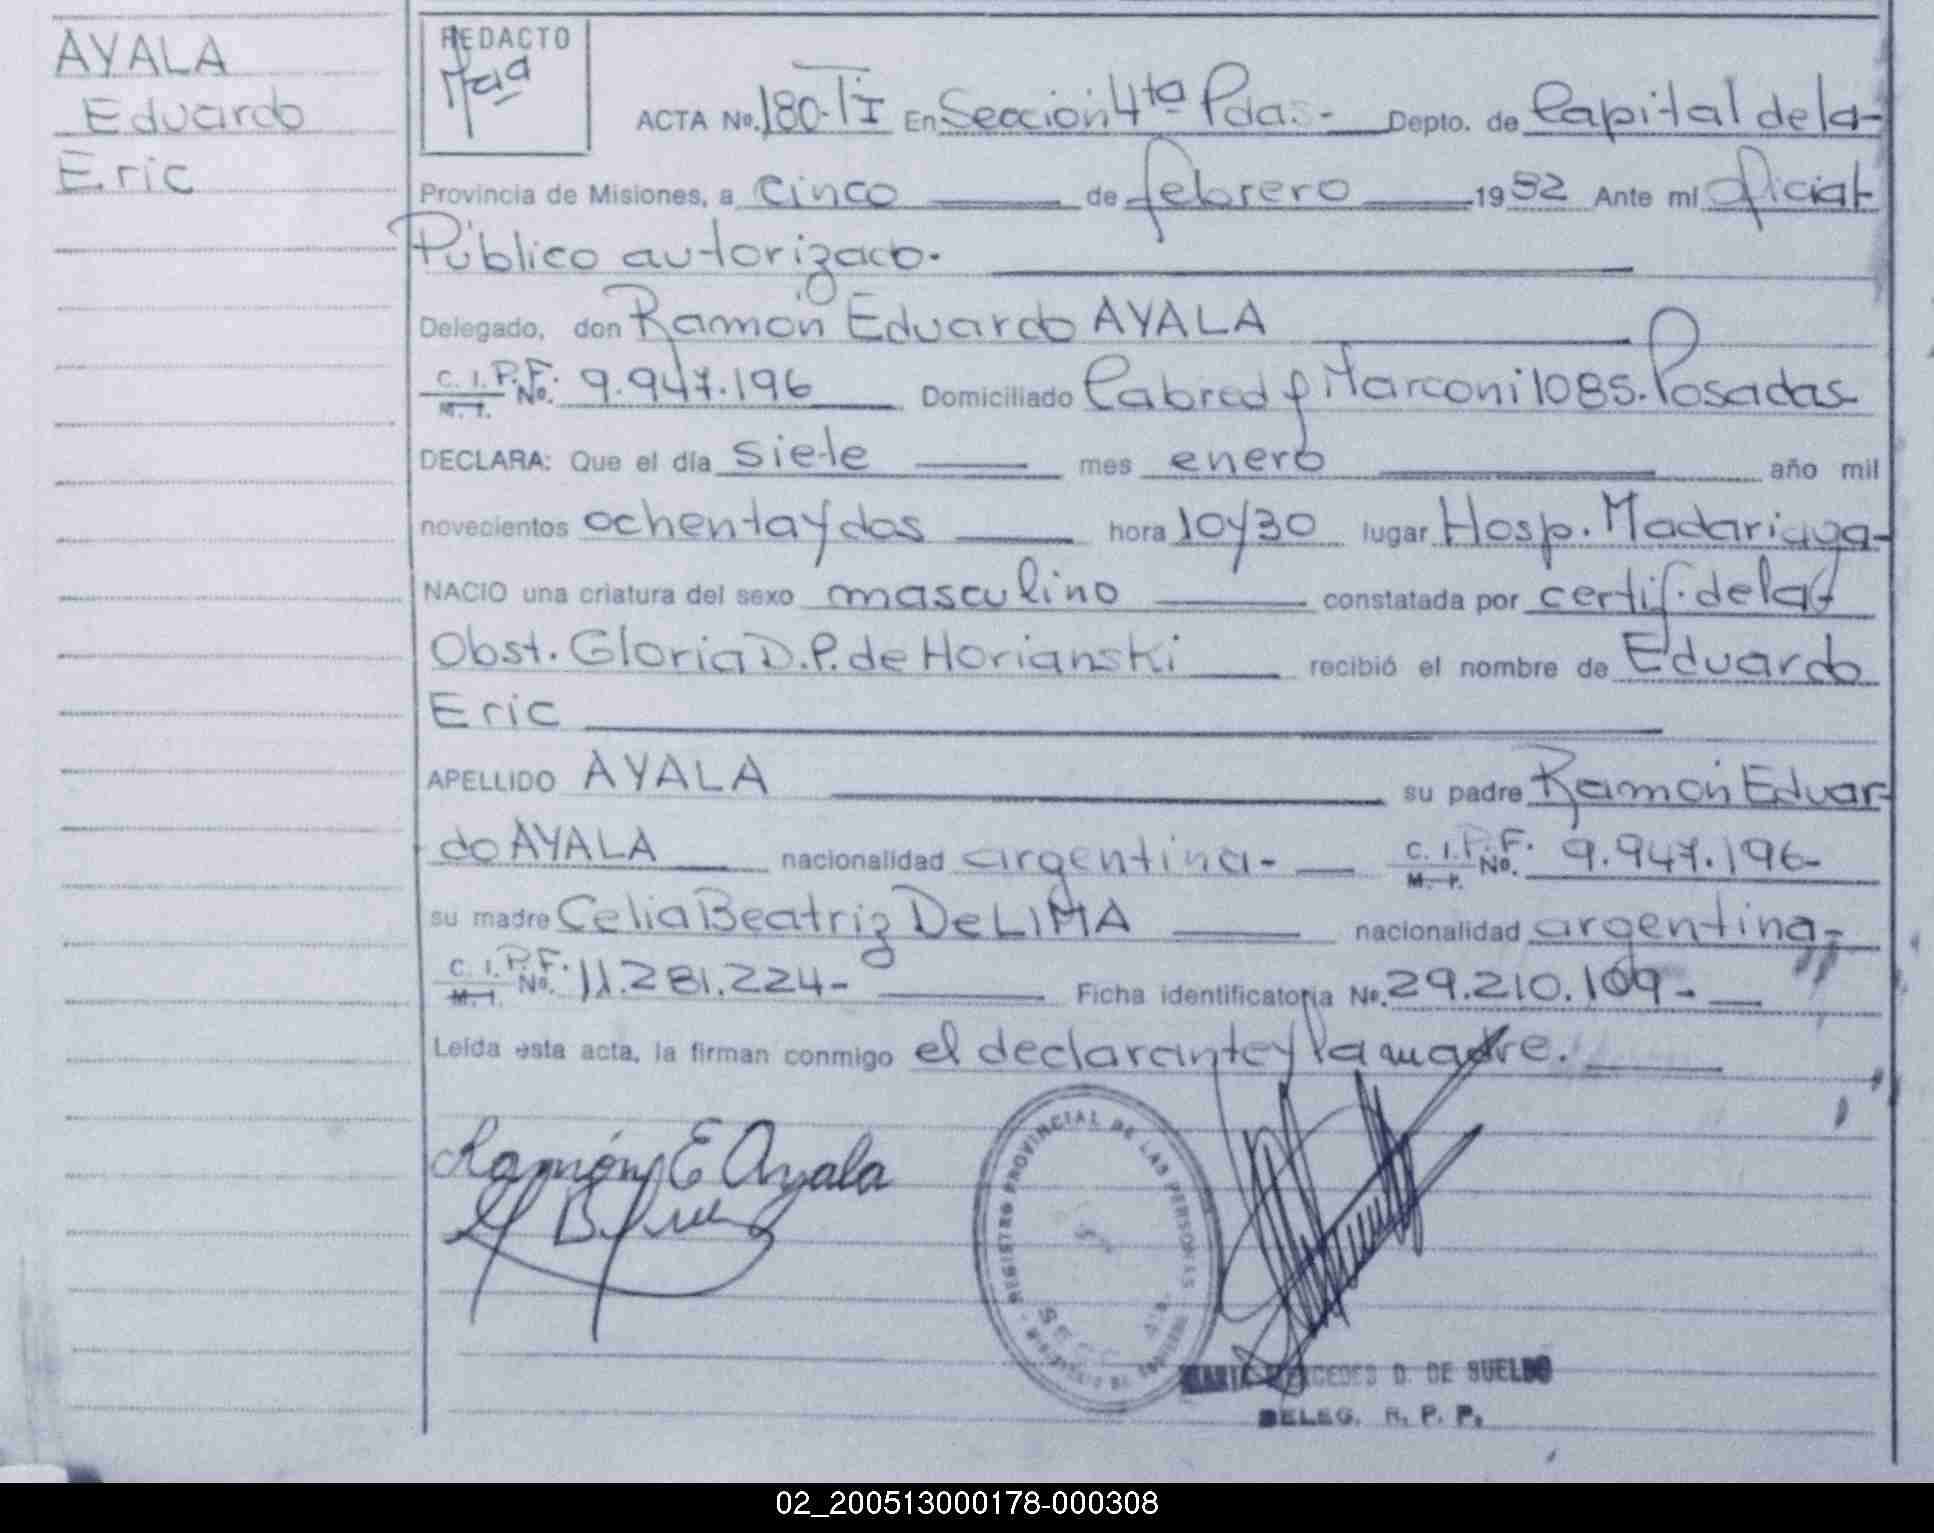 AYALA
Eduardo
Eric
REDACTO
ACTA No. 180-TI En Sección 4ta Pdas.- Depto. de Capital de la-
Provincia de Misiones, a cinco de febrero 1982 Ante mí oficial
Público autorizado.
Delegado, don Ramón Eduardo AYALA
C. I. P.F. No. 9.947.196 Domiciliado Cabred y Marconi 1085. Posadas
M. I.
DECLARA: Que el día siete mes enero año mil
novecientos ochenta y dos hora 10 y 30 lugar Hosp. Madariaga-
NACIO una criatura del sexo masculino constatada por certif. de la
Obst. Gloria D.P. de Horianski recibió el nombre de Eduardo
Eric
APELLIDO AYALA su padre Ramón Eduar-
do AYALA nacionalidad argentina- C. I. P.F. No. 9.947.196-
M. I.
su madre Celia Beatriz De LIMA nacionalidad argentina,-
C. I. P.F. No. 11.281.224- Ficha identificatoria No. 29.210.109-
M. I.
Leída esta acta, la firman conmigo el declarante y la madre.
Ramón E Ayala
REGISTRO PROVINCIAL DE LAS PERSONAS
MARIA MERCEDES D. DE SUELDO
DELEG. R. P. P.
02_200513000178-000308